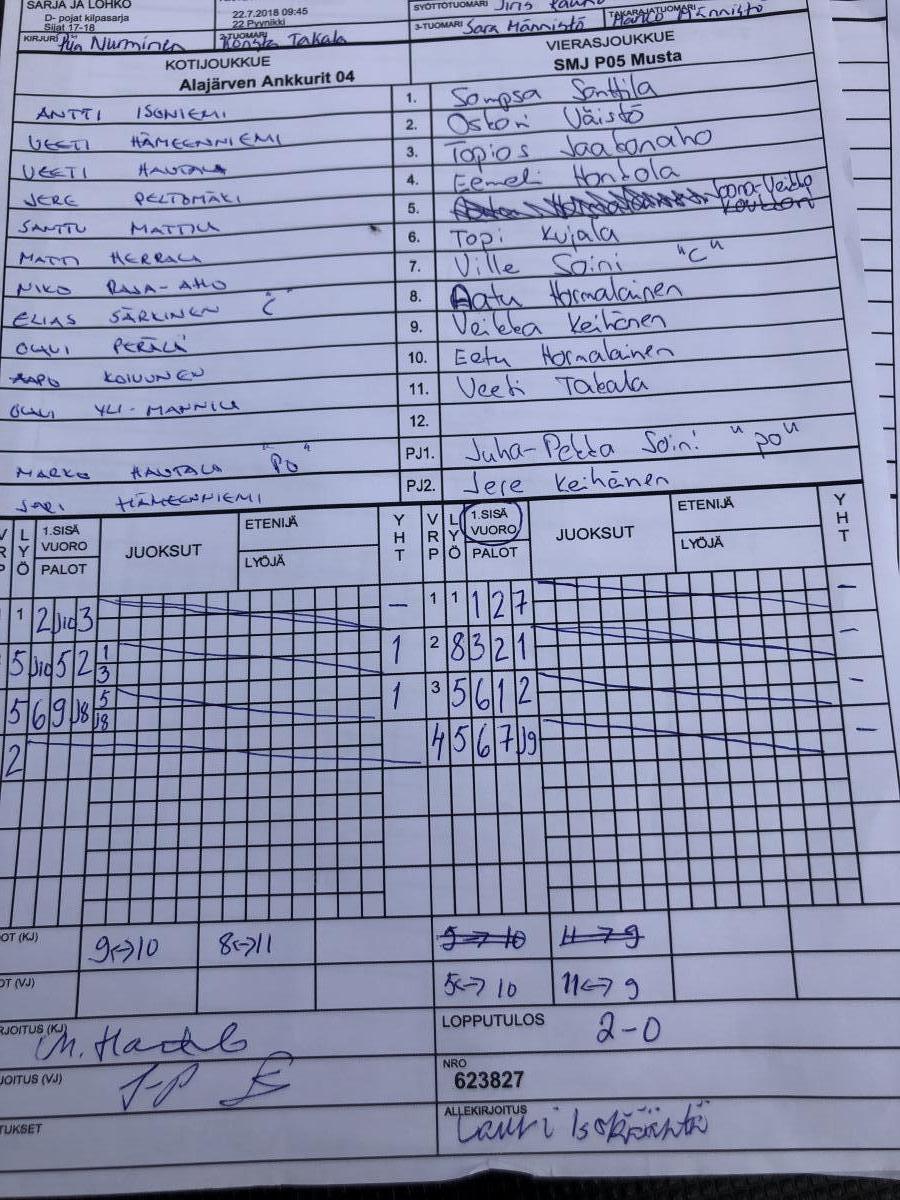 SARJA JA LOHKO
D- pojat kilpasarja
Sijat 17-18
22.7.2018 09:45
22 Pyynikki
SYÖTTÖTUOMARI
KIRJURI Piia Nurminen
2-TUOMARI Konsta Takala
3-TUOMARI Sara Männistö
TAKARAJATUOMARI Marko Männistö
KOTIJOUKKUE
Alajärven Ankkurit 04
VIERASJOUKKUE
SMJ P05 Musta
ANTTI ISONIEMI 1. Sampsa Santtila
VEETI HÄMEENNIEMI 2. Oskari Väistö
VEETI HAUTALA 3. Topias Jaakonaho
JERE PELTOMÄKI 4. Eemeli Honkola
SANTTU MATTILA 5.
MATTI HERRALA 6. Topi Kujala
NIKO RAJA-AHO 7. Ville Soini "C"
ELIAS SÄRKINEN "C" 8. Aatu Hormalainen
OLAVI PERÄLÄ 9. Veikka Keihänen
AAPO KOIVUNEN 10. Eetu Hormalainen
OLAVI YLI-MANNILA 11. Veeti Takala
12.
MARKO HAUTALA "PO" PJ1. Juha-Pekka Soini "PO"
JARI HÄMEENNIEMI PJ2. Jere Keihänen
LYÖ 1.SISÄ VUORO PALOT JUOKSUT ETENIJÄ LYÖJÄ YHT VRP LYÖ 1.SISÄ VUORO PALOT JUOKSUT ETENIJÄ LYÖJÄ YHT
1 2 J10 3 – 1 1 1 2 7 –
5 J10 5 2 1 3 1 2 8 3 2 1 –
5 6 9 J8 5 J8 1 3 5 6 1 2 –
2 4 5 6 7 J9 –
OT (KJ) 9<->10 8<->11 9->10 11->9
OT (VJ) 5<->10 11<->9
RJOITUS (KJ) M. Hautala LOPPUTULOS 2-0
JOITUS (VJ) J-P NRO 623827
TUKSET ALLEKIRJOITUS Lauri Isokääntä